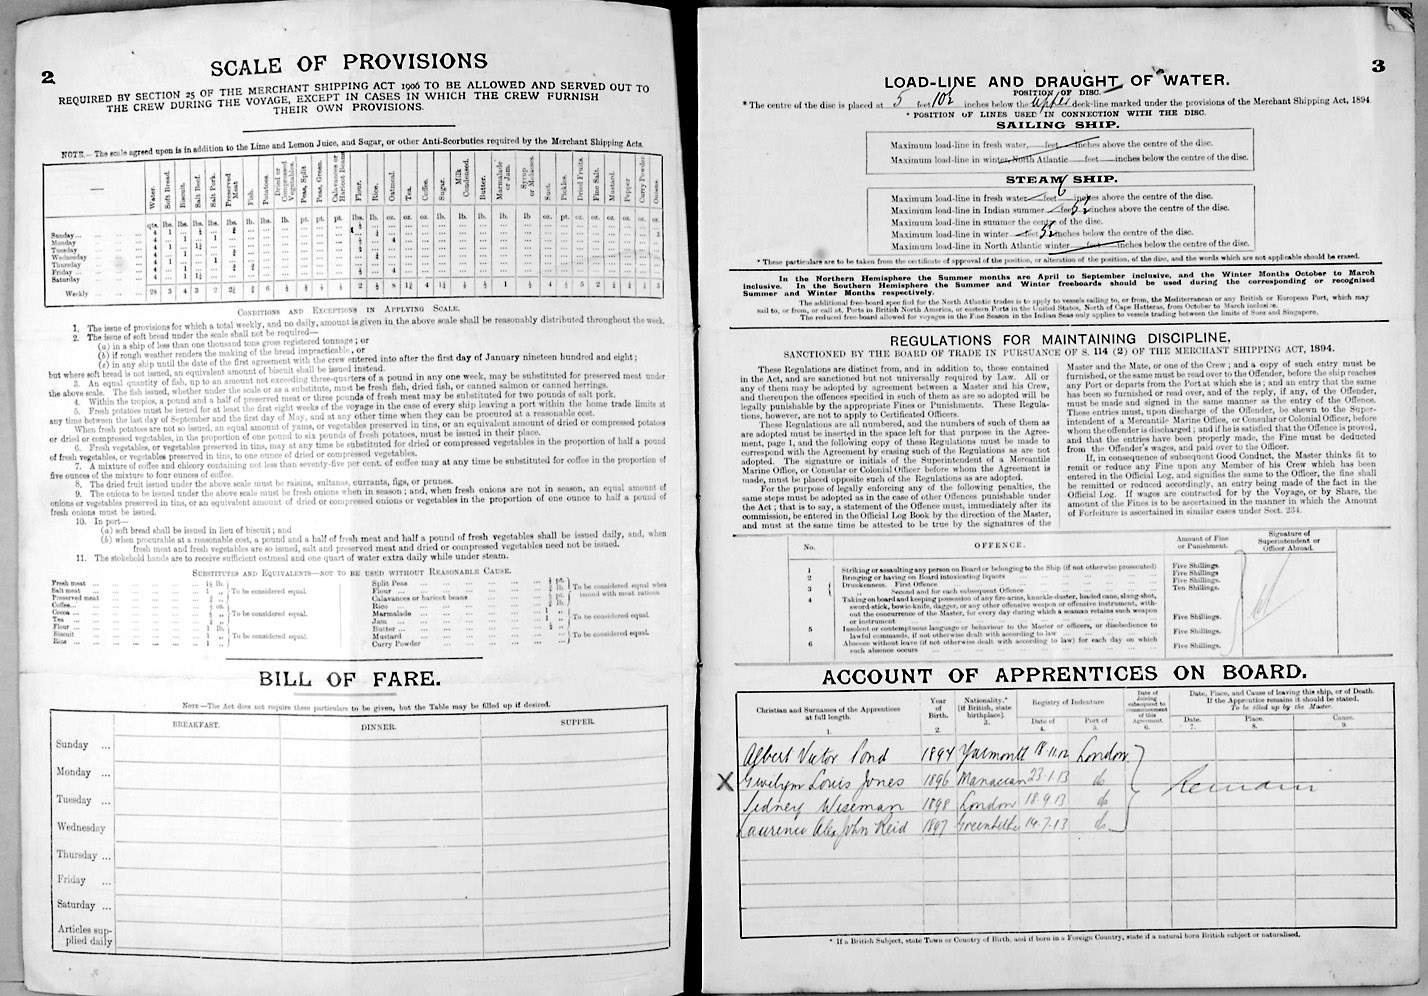 2
SCALE OF PROVISIONS
REQUIRED BY SECTION 25 OF THE MERCHANT SHIPPING ACT 1906 TO BE ALLOWED AND SERVED OUT TO
THE CREW DURING THE VOYAGE, EXCEPT IN CASES IN WHICH THE CREW FURNISH
THEIR OWN PROVISIONS.
NOTE.—The scale agreed upon is in addition to the Lime and Lemon Juice, and Sugar, or other Anti-Scorbutics required by the Merchant Shipping Acts.
Water. Soft Bread. Biscuit. Salt Beef. Salt Pork. Preserved Meat. Fish. Potatoes. Dried or Compressed Vegetables. Peas, Split. Peas, Green. Calavances or Haricot Beans. Flour. Rice. Oatmeal. Tea. Coffee. Sugar. Milk Condensed. Butter. Marmalade or Jam. Syrup or Molasses. Suet. Pickles. Dried Fruits. Fine Salt. Mustard. Pepper. Curry Powder. Onions.
Sunday
Monday
Tuesday
Wednesday
Thursday
Friday
Saturday
Weekly
CONDITIONS AND EXCEPTIONS IN APPLYING SCALE.
1. The issue of provisions for which a total weekly, and no daily, amount is given in the above scale shall be reasonably distributed throughout the week.
2. The issue of soft bread under the scale shall not be required—
(a) in a ship of less than one thousand tons gross registered tonnage; or
(b) if rough weather renders the making of the bread impracticable, or
(c) in any ship until the date of the first agreement with the crew entered into after the first day of January nineteen hundred and eight;
but where soft bread is not issued, an equivalent amount of biscuit shall be issued instead.
3. An equal quantity of fish, up to an amount not exceeding three-quarters of a pound in any one week, may be substituted for preserved meat under
the above scale. The fish issued, whether under the scale or as a substitute, must be fresh fish, dried fish, or canned salmon or canned herrings.
4. Within the tropics, a pound and a half of preserved meat or three pounds of fresh meat may be substituted for two pounds of salt pork.
5. Fresh potatoes must be issued for at least the first eight weeks of the voyage in the case of every ship leaving a port within the home trade limits at
any time between the last day of September and the first day of May, and at any other time when they can be procured at a reasonable cost.
When fresh potatoes are not so issued, an equal amount of yams, or vegetables preserved in tins, or an equivalent amount of dried or compressed potatoes
or dried or compressed vegetables, in the proportion of one pound to six pounds of fresh potatoes, must be issued in their place.
6. Fresh vegetables, or vegetables preserved in tins, may at any time be substituted for dried or compressed vegetables in the proportion of half a pound
of fresh vegetables, or vegetables preserved in tins, to one ounce of dried or compressed vegetables.
7. A mixture of coffee and chicory containing not less than seventy-five per cent. of coffee may at any time be substituted for coffee in the proportion of
five ounces of the mixture to four ounces of coffee.
8. The dried fruit issued under the above scale must be raisins, sultanas, currants, figs, or prunes.
9. The onions to be issued under the above scale must be fresh onions when in season; and, when fresh onions are not in season, an equal amount of
onions or vegetables preserved in tins, or an equivalent amount of dried or compressed onions or vegetables in the proportion of one ounce to half a pound of
fresh onions must be issued.
10. In port—
(a) soft bread shall be issued in lieu of biscuit; and
(b) when procurable at a reasonable cost, a pound and a half of fresh meat and half a pound of fresh vegetables shall be issued daily, and, when
fresh meat and fresh vegetables are so issued, salt and preserved meat and dried or compressed vegetables need not be issued.
11. The stokehold hands are to receive sufficient oatmeal and one quart of water extra daily while under steam.
SUBSTITUTES AND EQUIVALENTS—NOT TO BE USED WITHOUT REASONABLE CAUSE.
Fresh meat
Salt meat
Preserved meat
To be considered equal.
Coffee
Cocoa
Tea
To be considered equal.
Flour
Biscuit
Rice
To be considered equal.
Split Peas
Flour
Calavances or haricot beans
Rice
To be considered equal when
issued with meat rations.
Marmalade
Jam
Butter
To be considered equal.
Mustard
Curry Powder
To be considered equal.
BILL OF FARE.
NOTE.—The Act does not require these particulars to be given, but the Table may be filled up if desired.
BREAKFAST. DINNER. SUPPER.
Sunday ...
Monday ...
Tuesday ...
Wednesday
Thursday ...
Friday ...
Saturday ...
Articles sup-
plied daily
3
LOAD-LINE AND DRAUGHT OF WATER.
POSITION OF DISC.
* The centre of the disc is placed at 5 feet 10½ inches below the Upper deck-line marked under the provisions of the Merchant Shipping Act, 1894.
* POSITION OF LINES USED IN CONNECTION WITH THE DISC.
SAILING SHIP.
Maximum load-line in fresh water, feet inches above the centre of the disc.
Maximum load-line in winter, North Atlantic feet inches below the centre of the disc.
STEAM SHIP.
Maximum load-line in fresh water feet 6 inches above the centre of the disc.
Maximum load-line in Indian summer feet 5½ inches above the centre of the disc.
Maximum load-line in summer the centre of the disc.
Maximum load-line in winter feet 5½ inches below the centre of the disc.
Maximum load-line in North Atlantic winter feet inches below the centre of the disc.
* These particulars are to be taken from the certificate of approval of the position, or alteration of the position, of the disc, and the words which are not applicable should be erased.
In the Northern Hemisphere the Summer months are April to September inclusive, and the Winter Months October to March
inclusive. In the Southern Hemisphere the Summer and Winter freeboards should be used during the corresponding or recognised
Summer and Winter Months respectively.
The additional free-board specified for the North Atlantic trades is to apply to vessels sailing to, or from, the Mediterranean or any British or European Port, which may
sail to, or from, or call at, Ports in British North America, or eastern Ports in the United States, North of Cape Hatteras, from October to March inclusive.
The reduced freeboard allowed for voyages in the Fine Season in the Indian Seas only applies to vessels trading between the limits of Suez and Singapore.
REGULATIONS FOR MAINTAINING DISCIPLINE,
SANCTIONED BY THE BOARD OF TRADE IN PURSUANCE OF S. 114 (2) OF THE MERCHANT SHIPPING ACT, 1894.
These Regulations are distinct from, and in addition to, those contained
in the Act, and are sanctioned but not universally required by Law. All or
any of them may be adopted by agreement between a Master and his Crew,
and thereupon the offences specified in such of them as are so adopted will be
legally punishable by the appropriate Fines or Punishments. These Regula-
tions, however, are not to apply to Certificated Officers.
These Regulations are all numbered, and the numbers of such of them as
are adopted must be inserted in the space left for that purpose in the Agree-
ment, page 1, and the following copy of these Regulations must be made to
correspond with the Agreement by erasing such of the Regulations as are not
adopted. The signature or initials of the Superintendent of a Mercantile
Marine Office, or Consular or Colonial Officer before whom the Agreement is
made, must be placed opposite such of the Regulations as are adopted.
For the purpose of legally enforcing any of the following penalties, the
same steps must be adopted as in the case of other Offences punishable under
the Act; that is to say, a statement of the Offence must, immediately after its
commission, be entered in the Official Log Book by the direction of the Master,
and must at the same time be attested to be true by the signatures of the
Master and the Mate, or one of the Crew; and a copy of such entry must be
furnished, or the same must be read over to the Offender, before the ship reaches
any Port or departs from the Port at which she is; and an entry that the same
has been so furnished or read over, and of the reply, if any, of the Offender,
must be made and signed in the same manner as the entry of the Offence.
These entries must, upon discharge of the Offender, be shewn to the Super-
intendent of a Mercantile Marine Office, or Consular or Colonial Officer, before
whom the offender is discharged; and if he is satisfied that the Offence is proved,
and that the entries have been properly made, the Fine must be deducted
from the Offender's wages, and paid over to the Officer.
If, in consequence of subsequent Good Conduct, the Master thinks fit to
remit or reduce any Fine upon any Member of his Crew which has been
entered in the Official Log, and signifies the same to the Officer, the fine shall
be remitted or reduced accordingly, an entry being made of the fact in the
Official Log. If wages are contracted for by the Voyage, or by Share, the
amount of the Fines is to be ascertained in the manner in which the Amount
of Forfeiture is ascertained in similar cases under Sect. 234.
No. OFFENCE. Amount of Fine or Punishment. Signature of Superintendent or Officer Abroad.
1 Striking or assaulting any person on Board or belonging to the Ship (if not otherwise prosecuted) Five Shillings.
2 Bringing or having on Board intoxicating liquors Five Shillings.
3 Drunkenness. First Offence Five Shillings.
Second and for each subsequent Offence Ten Shillings.
4 Taking on board and keeping possession of any fire-arms, knuckle-duster, loaded cane, slung-shot,
sword-stick, bowie-knife, dagger, or any other offensive weapon or offensive instrument, with-
out the concurrence of the Master, for every day during which a seaman retains such weapon
or instrument Five Shillings.
5 Insolent or contemptuous language or behaviour to the Master or officers, or disobedience to
lawful commands, if not otherwise dealt with according to law Five Shillings.
6 Absence without leave (if not otherwise dealt with according to law) for each day on which
such absence occurs Five Shillings.
ACCOUNT OF APPRENTICES ON BOARD.
Christian and Surnames of the Apprentices at full length. 1. Year of Birth. 2. Nationality.* [if British, state birthplace]. 3. Registry of Indenture Date of 4. Port of 5. Date of Joining subsequent to commencement of this Agreement. 6. Date, Place, and Cause of leaving this ship, or of Death. If the Apprentice remains it should be stated. To be filled up by the Master. Date. 7. Place. 8. Cause. 9.
Albert Victor Pond 1894 Yarmouth 18.11.12 London
X Gwilym Louis Jones 1896 Manaccan 23.1.13 do Remain
Sidney Wiseman 1898 London 18.9.13 do
Laurence Alex John Reid 1897 Greenhithe 14.7.13 do
* If a British Subject, state Town or Country of Birth, and if born in a Foreign Country, state if a natural born British subject or naturalised.